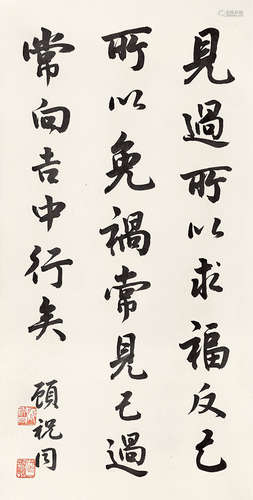 見過所以求福反己
所以免禍常見己過
常向吉中行矣
顧祝同